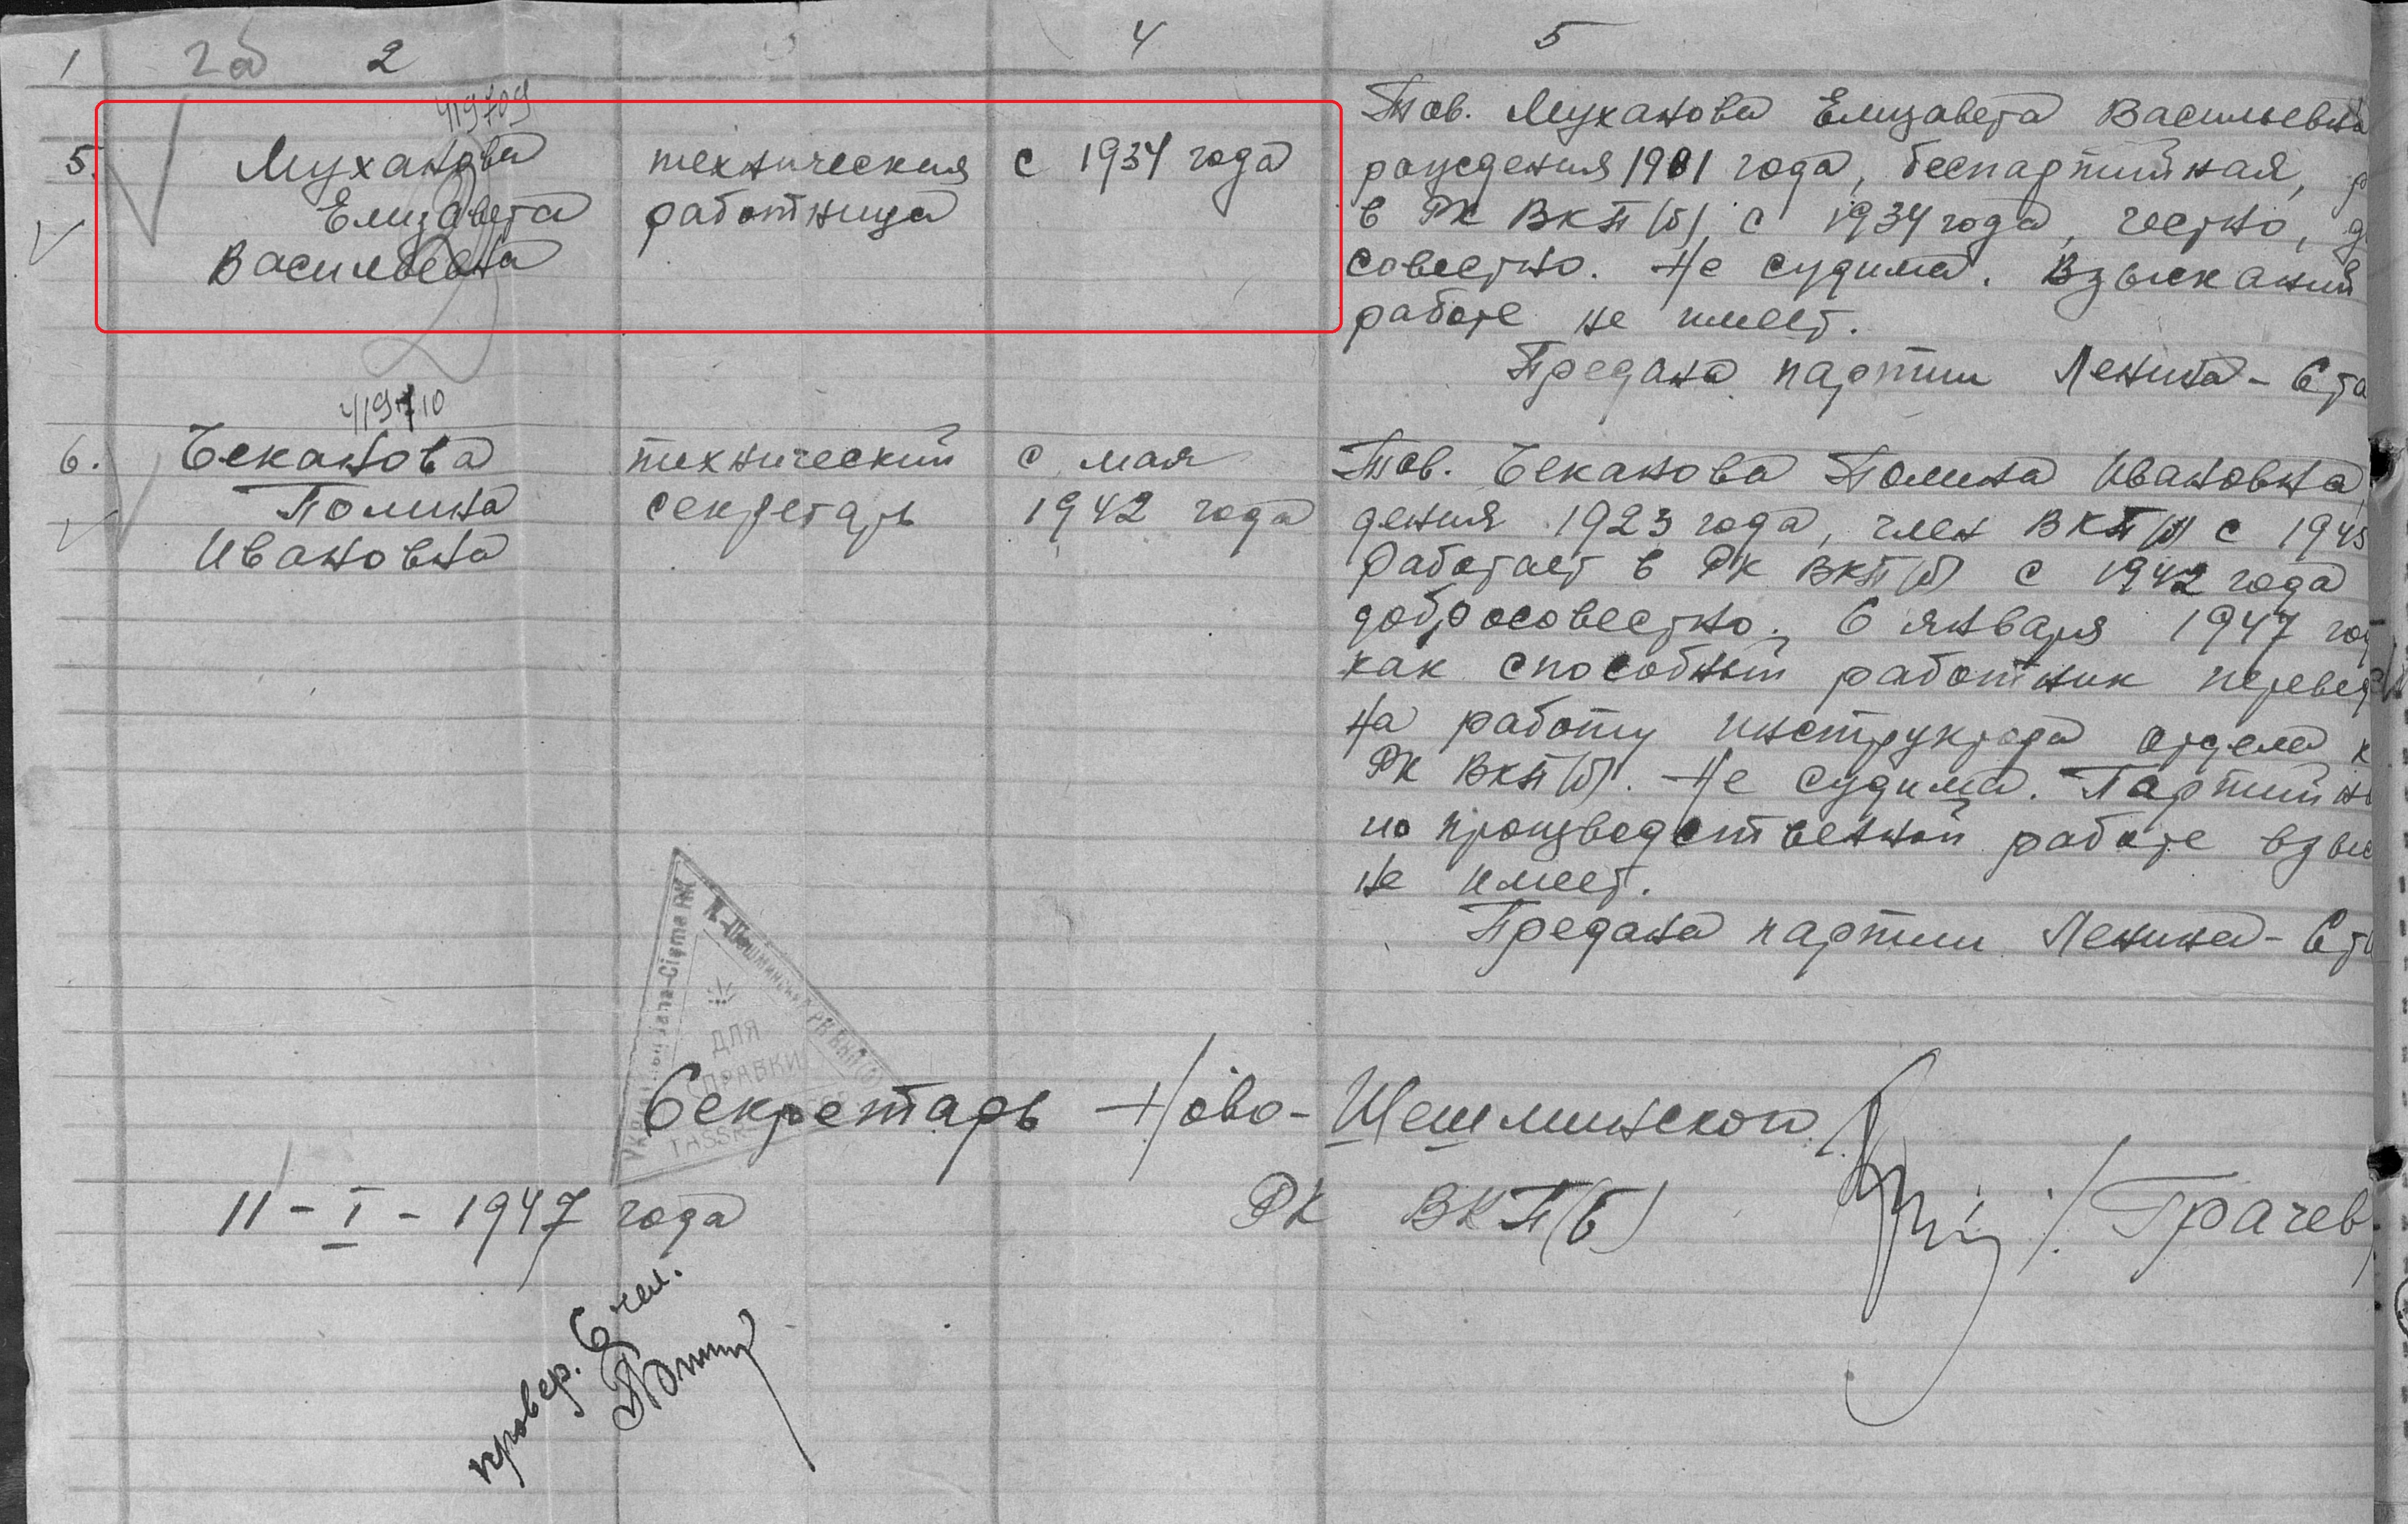 1 2а 2 4 5
419709
5. Муханова техническая с 1934 года
Елизавета работница
Васильевна
Тов. Муханова Елизавета Васильевна
рождения 1901 года, беспартийная, р
в РК ВКП(б) с 1934 года, честно, д
совестно. Не судима. Взысканий
работе не имеет.
Предана партии Ленина - Ста
419710
6. Чеканова технический с мая
Полина секретарь 1942 года
Ивановна
Тов. Чеканова Полина Ивановна,
дения 1923 года, член ВКП(б) с 1945
Работает в РК ВКП(б) с 1942 года
добросовестно. 6 января 1947 год
как способный работник перевед
на работу инструктора отдела к
РК ВКП(б). Не судима. Партийн
по производственной работе взыс
не имеет.
Предана партии Ленина - Ста
Н-Шешминский РК ВКП(б)
ДЛЯ
СПРАВКИ
Секретарь Ново-Шешминского
РК ВКП(б) /Грачев/
11 - I - 1947 года
провер. 6 чел.